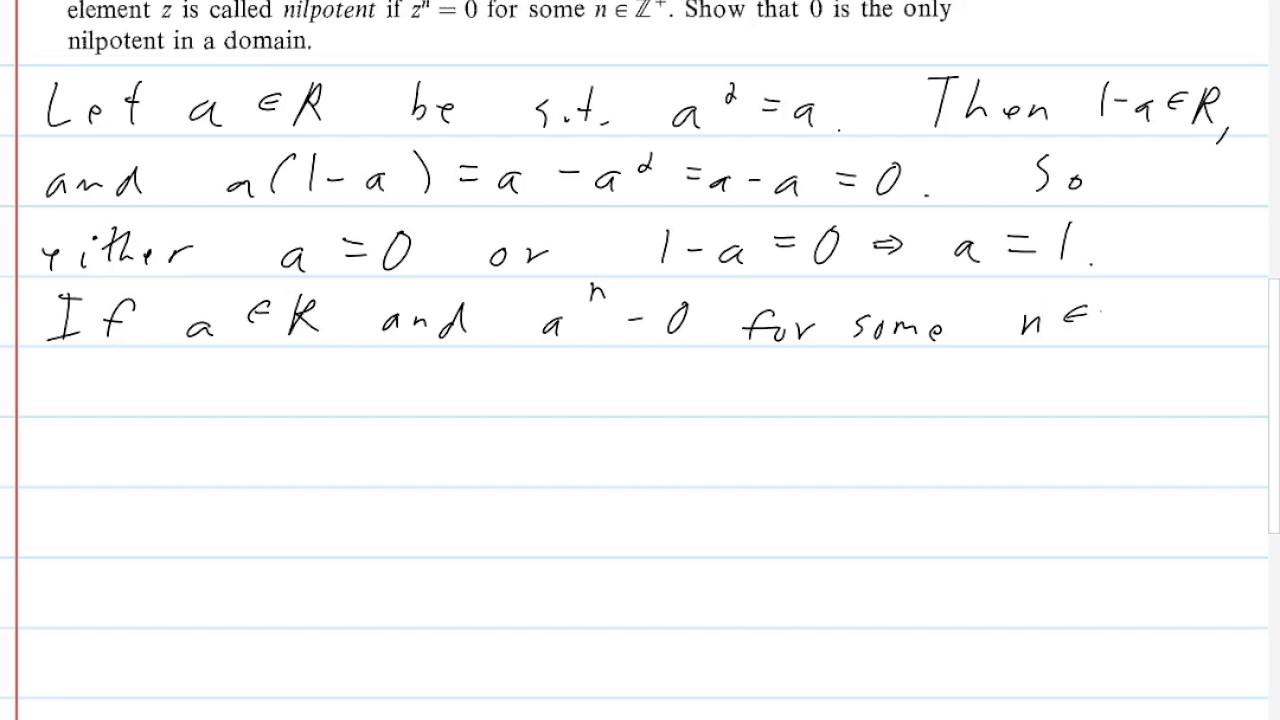 element z is called nilpotent if zⁿ = 0 for some n ∈ ℤ⁺. Show that 0 is the only
nilpotent in a domain.
Let a ∈ R be s.t. a² = a. Then 1-a ∈ R,
and a(1-a) = a - a² = a - a = 0. So
either a = 0 or 1-a = 0 ⇒ a = 1.
If a ∈ R and aⁿ - 0 for some n ∈